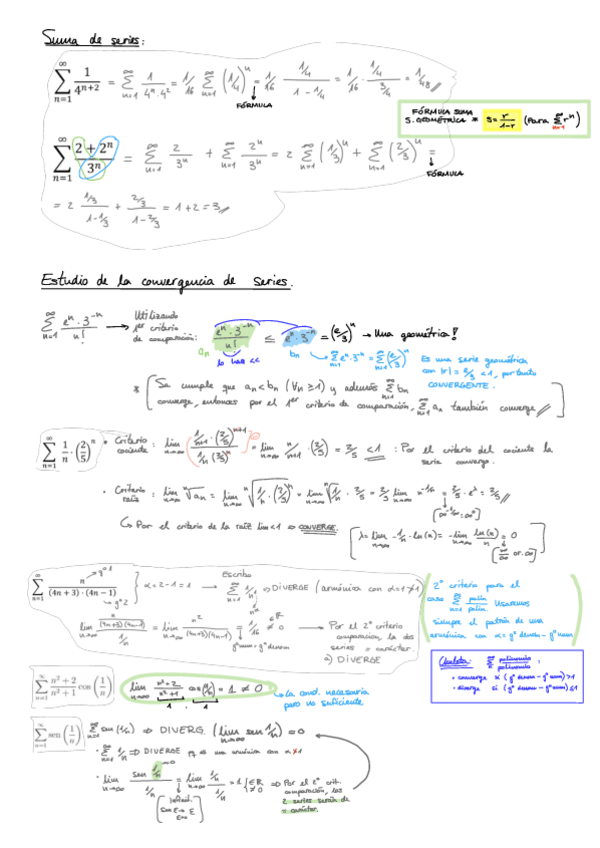 Suma de series:
∑_{n=1}^{∞} 1/4^{n+2} = ∑_{n=1}^{∞} 1/(4^n · 4^2) = 1/16 ∑_{n=1}^{∞} (1/4)^n = 1/16 · (1/4)/(1 - 1/4) = 1/16 · (1/4)/(3/4) = 1/48 //
FÓRMULA
FÓRMULA SUMA
S. GEOMÉTRICA * S = r/(1-r) (para ∑_{n=1}^{∞} r^n)
∑_{n=1}^{∞} (2 + 2^n)/3^n = ∑_{n=1}^{∞} 2/3^n + ∑_{n=1}^{∞} 2^n/3^n = 2 ∑_{n=1}^{∞} (1/3)^n + ∑_{n=1}^{∞} (2/3)^n =
FÓRMULA
= 2 (1/3)/(1-1/3) + (2/3)/(1-2/3) = 1 + 2 = 3 //
Estudio de la convergencia de series.
∑_{n=1}^{∞} e^n · 3^{-n}/n! → Utilizando 1er criterio de comparación: e^n · 3^{-n}/n! ≤ e^n · 3^{-n} = (e/3)^n → Una geométrica!
a_n lo hace << b_n → ∑_{n=1}^{∞} e^n · 3^{-n} = ∑_{n=1}^{∞} (e/3)^n
Es una serie geométrica
con |r| = e/3 < 1, por tanto
CONVERGENTE.
* [Se cumple que a_n < b_n (∀n ≥ 1) y además ∑_{n=1}^{∞} b_n
converge, entonces por el 1er criterio de comparación, ∑_{n=1}^{∞} a_n también converge //]
∑_{n=1}^{∞} 1/n · (2/5)^n • Criterio cociente: lim_{n→∞} = lim_{n→∞} n/(n+1) · (2/5) = 2/5 < 1 : Por el criterio del cociente la
serie converge.
• Criterio raíz: lim_{n→∞} ⁿ√a_n = lim_{n→∞} ⁿ√(1/n · (2/5)^n) = lim_{n→∞} ⁿ√(1/n) · 2/5 = 2/5 lim_{n→∞} n^{-1/n} = 2/5 · e^λ = 2/5 //
↳ Por el criterio de la raíz lim < 1 ⇒ CONVERGE.
[λ = lim_{n→∞} -1/n · ln(n) = - lim_{n→∞} ln(n)/n = 0
∑_{n=1}^{∞} n/((4n + 3) · (4n − 1)) } α = 2 - 1 = 1 → Escribo ∑_{n=1}^{∞} 1/n ⇒ DIVERGE (armónica con α = 1
gº 1
gº 2
lim_{n→∞} (n/((4n+3)(4n-1)))/(1/n) = lim_{n→∞} n²/((4n+3)(4n-1)) = 1/16 ∈ ℝ ≠ 0 → Por el 2º criterio
comparación, las dos
series = carácter.
⇒ DIVERGE
gº num = gº denom
2º criterio para el
caso ∑_{n=1}^{∞} polin/polin Usaremos
siempre el patrón de una
armónica con α = gº denom - gº num
Chuleta: ∑ polinomio/polinomio :
• converge si (gº denom - gº num) > 1
• diverge si (gº denom - gº num) ≤ 1
∑_{n=1}^{∞} (n² + 2)/(n² + 1) cos(1/n) lim_{n→∞} (n² + 2)/(n² + 1) cos(1/n) = 1 ≠ 0
1 · 1
↳ La cond. necesaria
pero no suficiente
∑_{n=1}^{∞} sen(1/n) ∑_{n=1}^{∞} sen(1/n) ⇒ DIVERG. (lim_{n→∞} sen 1/n) = 0
• ∑_{n=1}^{∞} 1/n ⇒ DIVERGE pq es una armónica con
• lim_{n→∞} (sen 1/n)/(1/n) = lim_{n→∞} (1/n)/(1/n) = 1 ∈ ℝ ≠ 0 ⇒ Por el 2º crit.
comparación, las
2 series serán de
= carácter.